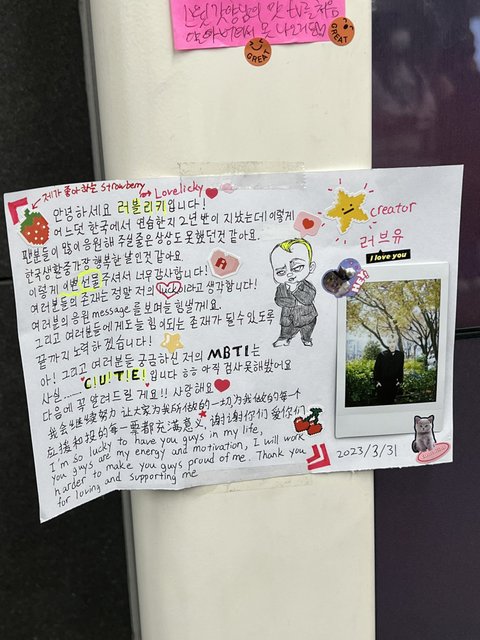 GREAT
GREAT
제가 좋아하는 strawberry
Lovelicky
안녕하세요 러블리키입니다!
어느덧 한국에서 연습한지 2년 반이 지났는데 이렇게
팬분들이 많이 응원해 주실줄은 상상도 못했던것 같아요.
한국생활중 가장 행복한 날인것 같아요.
이렇게 이쁜 선물 주셔서 너무 감사합니다!
여러분들의 존재는 정말 저의 lucky이라고 생각합니다!
여러분의 응원 message를 보며 늘 힘낼게요.
그리고 여러분들에게도 늘 힘이되는 존재가 될수 있도록
끝까지 노력하겠습니다!
아! 그리고 여러분들 궁금하신 저의 MBTI는
사실 ......
C!U!T!E! 입니다 ㅎㅎ 아직 검사 못해봤어요
다음에 꼭 알려드릴게요!! 사랑해요
我会继续努力 让大家为我所做的一切为我做的每个
应援和投的每一票都充满意义, 谢谢你们 爱你们
I'm so lucky to have you guys in my life,
you guys are my energy and motivation, I will work
harder to make you guys proud of me. Thank you
for loving and supporting me
creator
러브유
I love you
2023/3/31